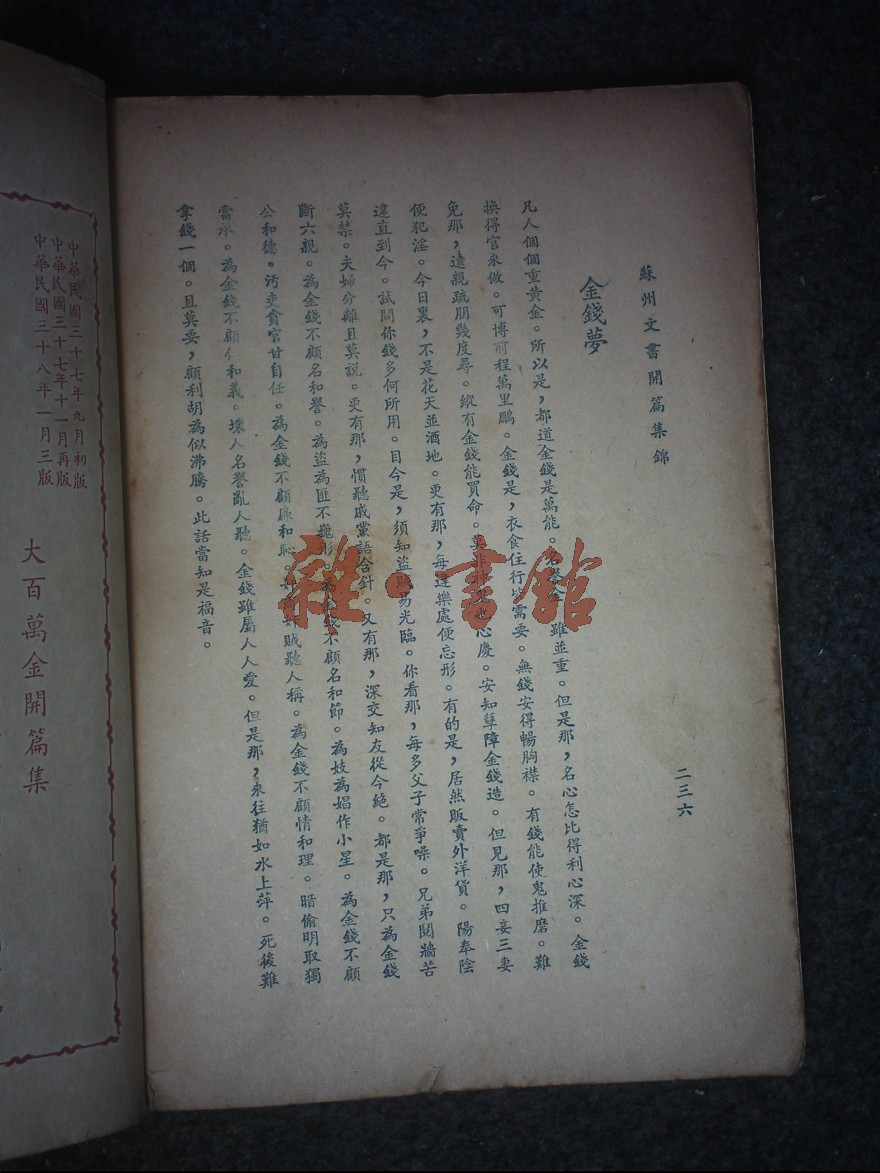 蘇州文書開篇集錦
二三六
金錢夢
凡人個個重黃金。所以是，都道金錢是萬能。名譽金 雖並重。但是那，名心怎比得利心深。金錢
換得官來做。可博前程萬里鵬。金錢是，衣食住行皆需要。無錢安得暢胸襟。有錢能使鬼推磨。難
免那，遠親疏朋幾度尋。縱有金錢能買命。莫非 心慶。安知孽障金錢造。但見那，四妾三妻
便犯淫。今日裏，不是花天並酒地。更有那，每逢樂處便忘形。有的是，居然販賣外洋貨。陽奉陰
違直到今。試問你錢多何所用。目今是，須知盜賊易光臨。你看那，每多父子常爭噪。兄弟鬩牆苦
莫禁。夫婦分離且莫說。更有那，慣聽戚黨語含針。又有那，深交知友從今絕。都是那，只為金錢
斷六親。為金錢不顧名和譽。為盜為匪不 形。為金錢不顧名和節。為妓為娼作小星。為金錢不顧
公和德。汚吏貪官甘自任。為金錢不顧廉和恥。 奸賊聽人稱。為金錢不顧情和理。暗偷明取獨
當承。為金錢不顧仁和義。壞人名譽亂人聽。金錢雖屬人人愛。但是那，來往猶如水上萍。死後難
拿錢一個。且莫要，顧利胡為似沸騰。此話當知是福音。
雜·書館
中華民國三十七年九月初版
中華民國三十七年十一月再版
中華民國三十八年一月三版
大百萬金開篇集